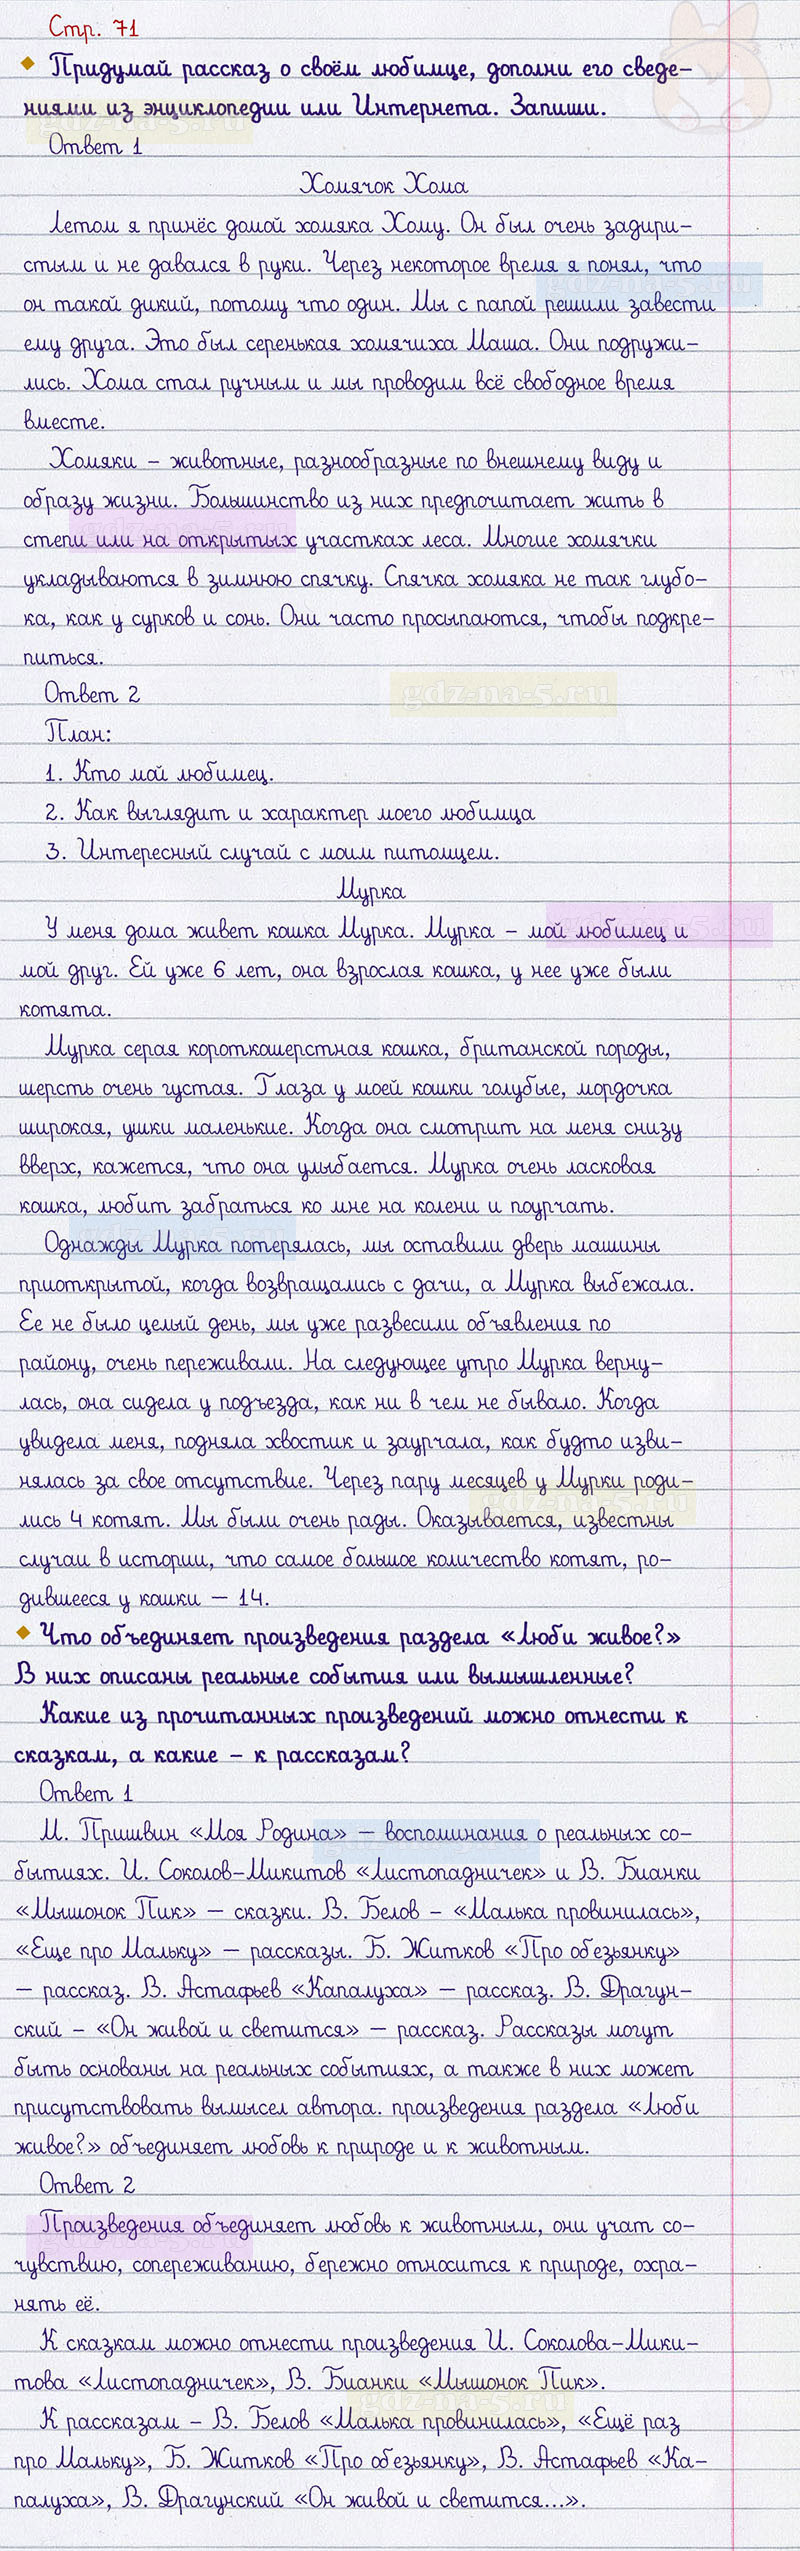 Стр. 71
Придумай рассказ о своём любимце, дополни его сведе-
ниями из энциклопедии или Интернета. Запиши.
Ответ 1
Хомячок Хома
Летом я принёс домой хомяка Хому. Он был очень задири-
стым и не давался в руки. Через некоторое время я понял, что
он такой дикий, потому что один. Мы с папой решили завести
ему друга. Это был серенькая хомячиха Маша. Они подружи-
лись. Хома стал ручным и мы проводим всё свободное время
вместе.
Хомяки – животные, разнообразные по внешнему виду и
образу жизни. Большинство из них предпочитает жить в
степи или на открытых участках леса. Многие хомячки
укладываются в зимнюю спячку. Спячка хомяка не так глубо-
ка, как у сурков и сонь. Они часто просыпаются, чтобы подкре-
питься.
Ответ 2
gdz-na-5.ru
План:
1. Кто мой любимец.
2. Как выглядит и характер моего любимца
3. Интересный случай с моим питомцем.
Мурка
У меня дома живет кошка Мурка. Мурка – мой любимец и
мой друг. Ей уже 6 лет, она взрослая кошка, у нее уже были
котята.
Мурка серая короткошерстная кошка, британской породы,
шерсть очень густая. Глаза у моей кошки голубые, мордочка
широкая, ушки маленькие. Когда она смотрит на меня снизу
вверх, кажется, что она улыбается. Мурка очень ласковая
кошка, любит забраться ко мне на колени и поурчать.
Однажды Мурка потерялась, мы оставили дверь машины
приоткрытой, когда возвращались с дачи, а Мурка выбежала.
Ее не было целый день, мы уже развесили объявления по
району, очень переживали. На следующее утро Мурка верну-
лась, она сидела у подъезда, как ни в чем не бывало. Когда
увидела меня, подняла хвостик и заурчала, как будто изви-
нялась за свое отсутствие. Через пару месяцев у Мурки роди-
лись 4 котят. Мы были очень рады. Оказывается, известны
случаи в истории, что самое большое количество котят, ро-
дившееся у кошки — 14.
Что объединяет произведения раздела «Люби живое?»
В них описаны реальные события или вымышленные?
Какие из прочитанных произведений можно отнести к
сказкам, а какие – к рассказам?
Ответ 1
М. Пришвин «Моя Родина» — воспоминания о реальных со-
бытиях. И. Соколов-Микитов «Листопадничек» и В. Бианки
«Мышонок Пик» — сказки. В. Белов – «Малька провинилась»,
«Еще про Мальку» — рассказы. Б. Житков «Про обезьянку»
— рассказ. В. Астафьев «Капалуха» — рассказ. В. Драгун-
ский – «Он живой и светится» — рассказ. Рассказы могут
быть основаны на реальных событиях, а также в них может
присутствовать вымысел автора. произведения раздела «Люби
живое?» объединяет любовь к природе и к животным.
Ответ 2
Произведения объединяет любовь к животным, они учат со-
чувствию, сопереживанию, бережно относится к природе, охра-
нять её.
К сказкам можно отнести произведения И. Соколова-Мики-
това «Листопадничек», В. Бианки «Мышонок Пик».
К рассказам – В. Белов «Малька провинилась», «Ещё раз
про Мальку», Б. Житков «Про обезьянку», В. Астафьев «Ка-
палуха», В. Драгунский «Он живой и светится...».